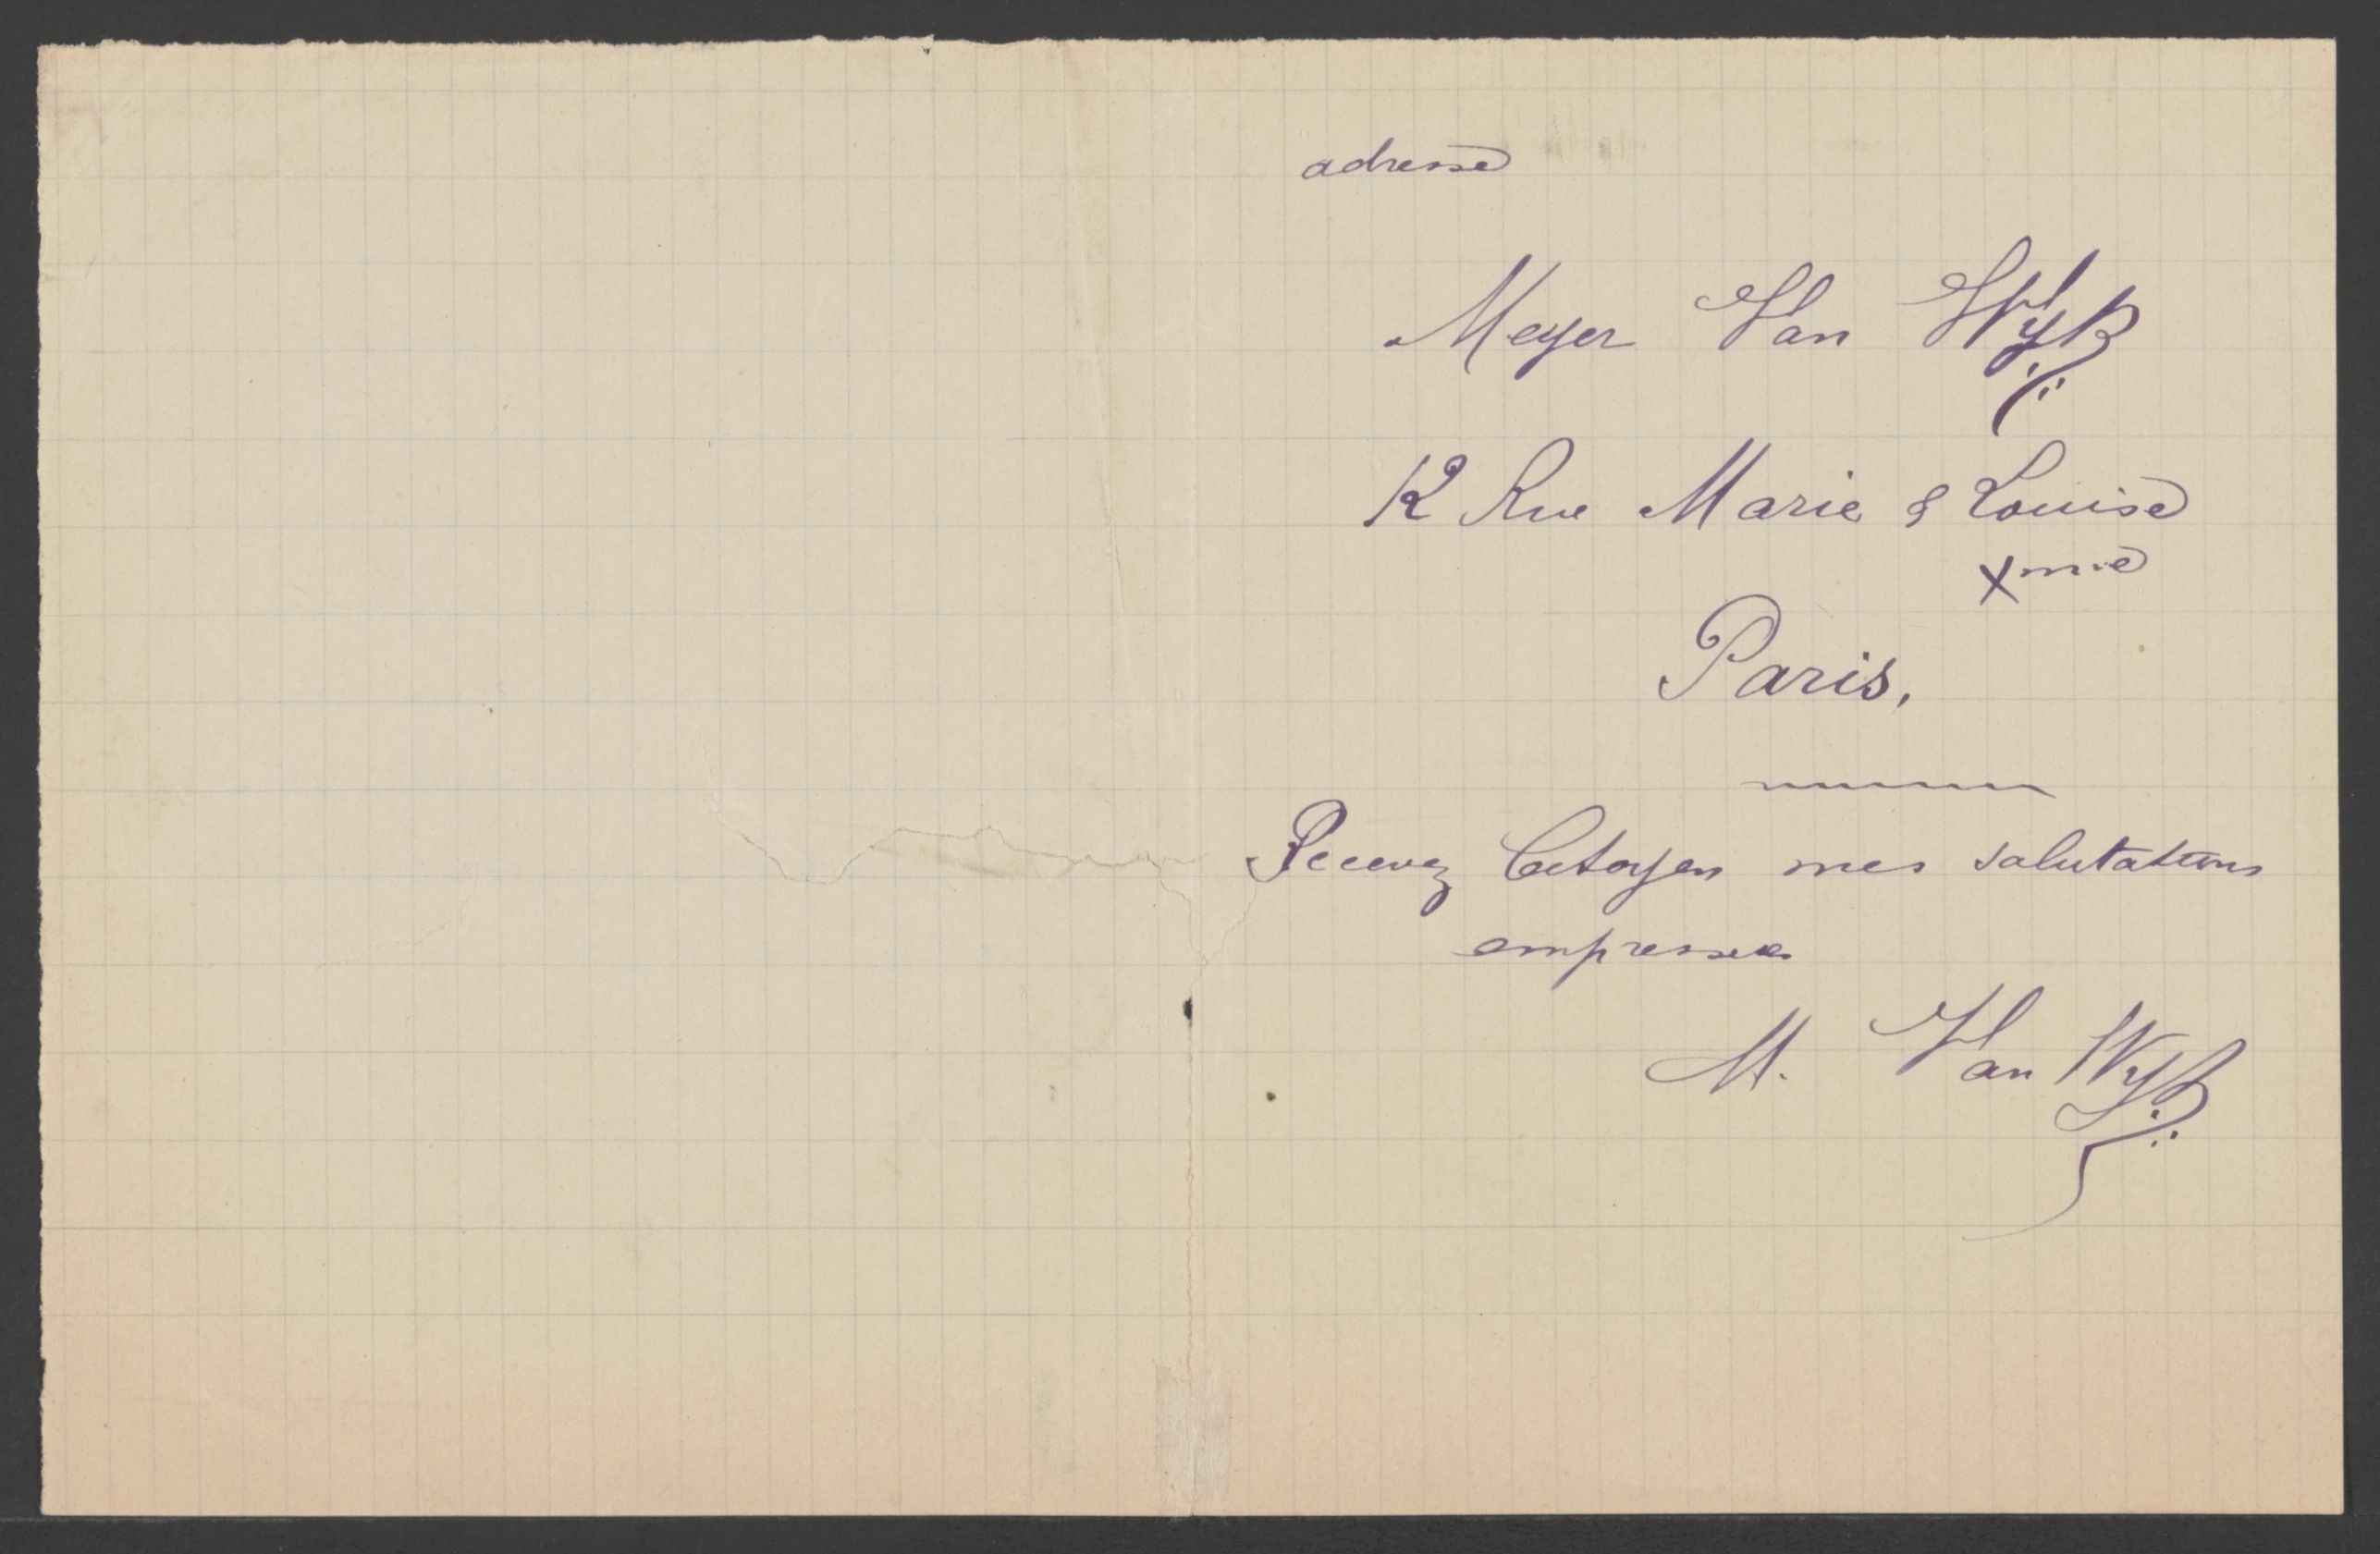 adresse
Meyer Van Wyk
12 Rue Marie & Louise
Xme
Paris,
Recevez Citoyen mes salutations
empressées
M. Van Wyk